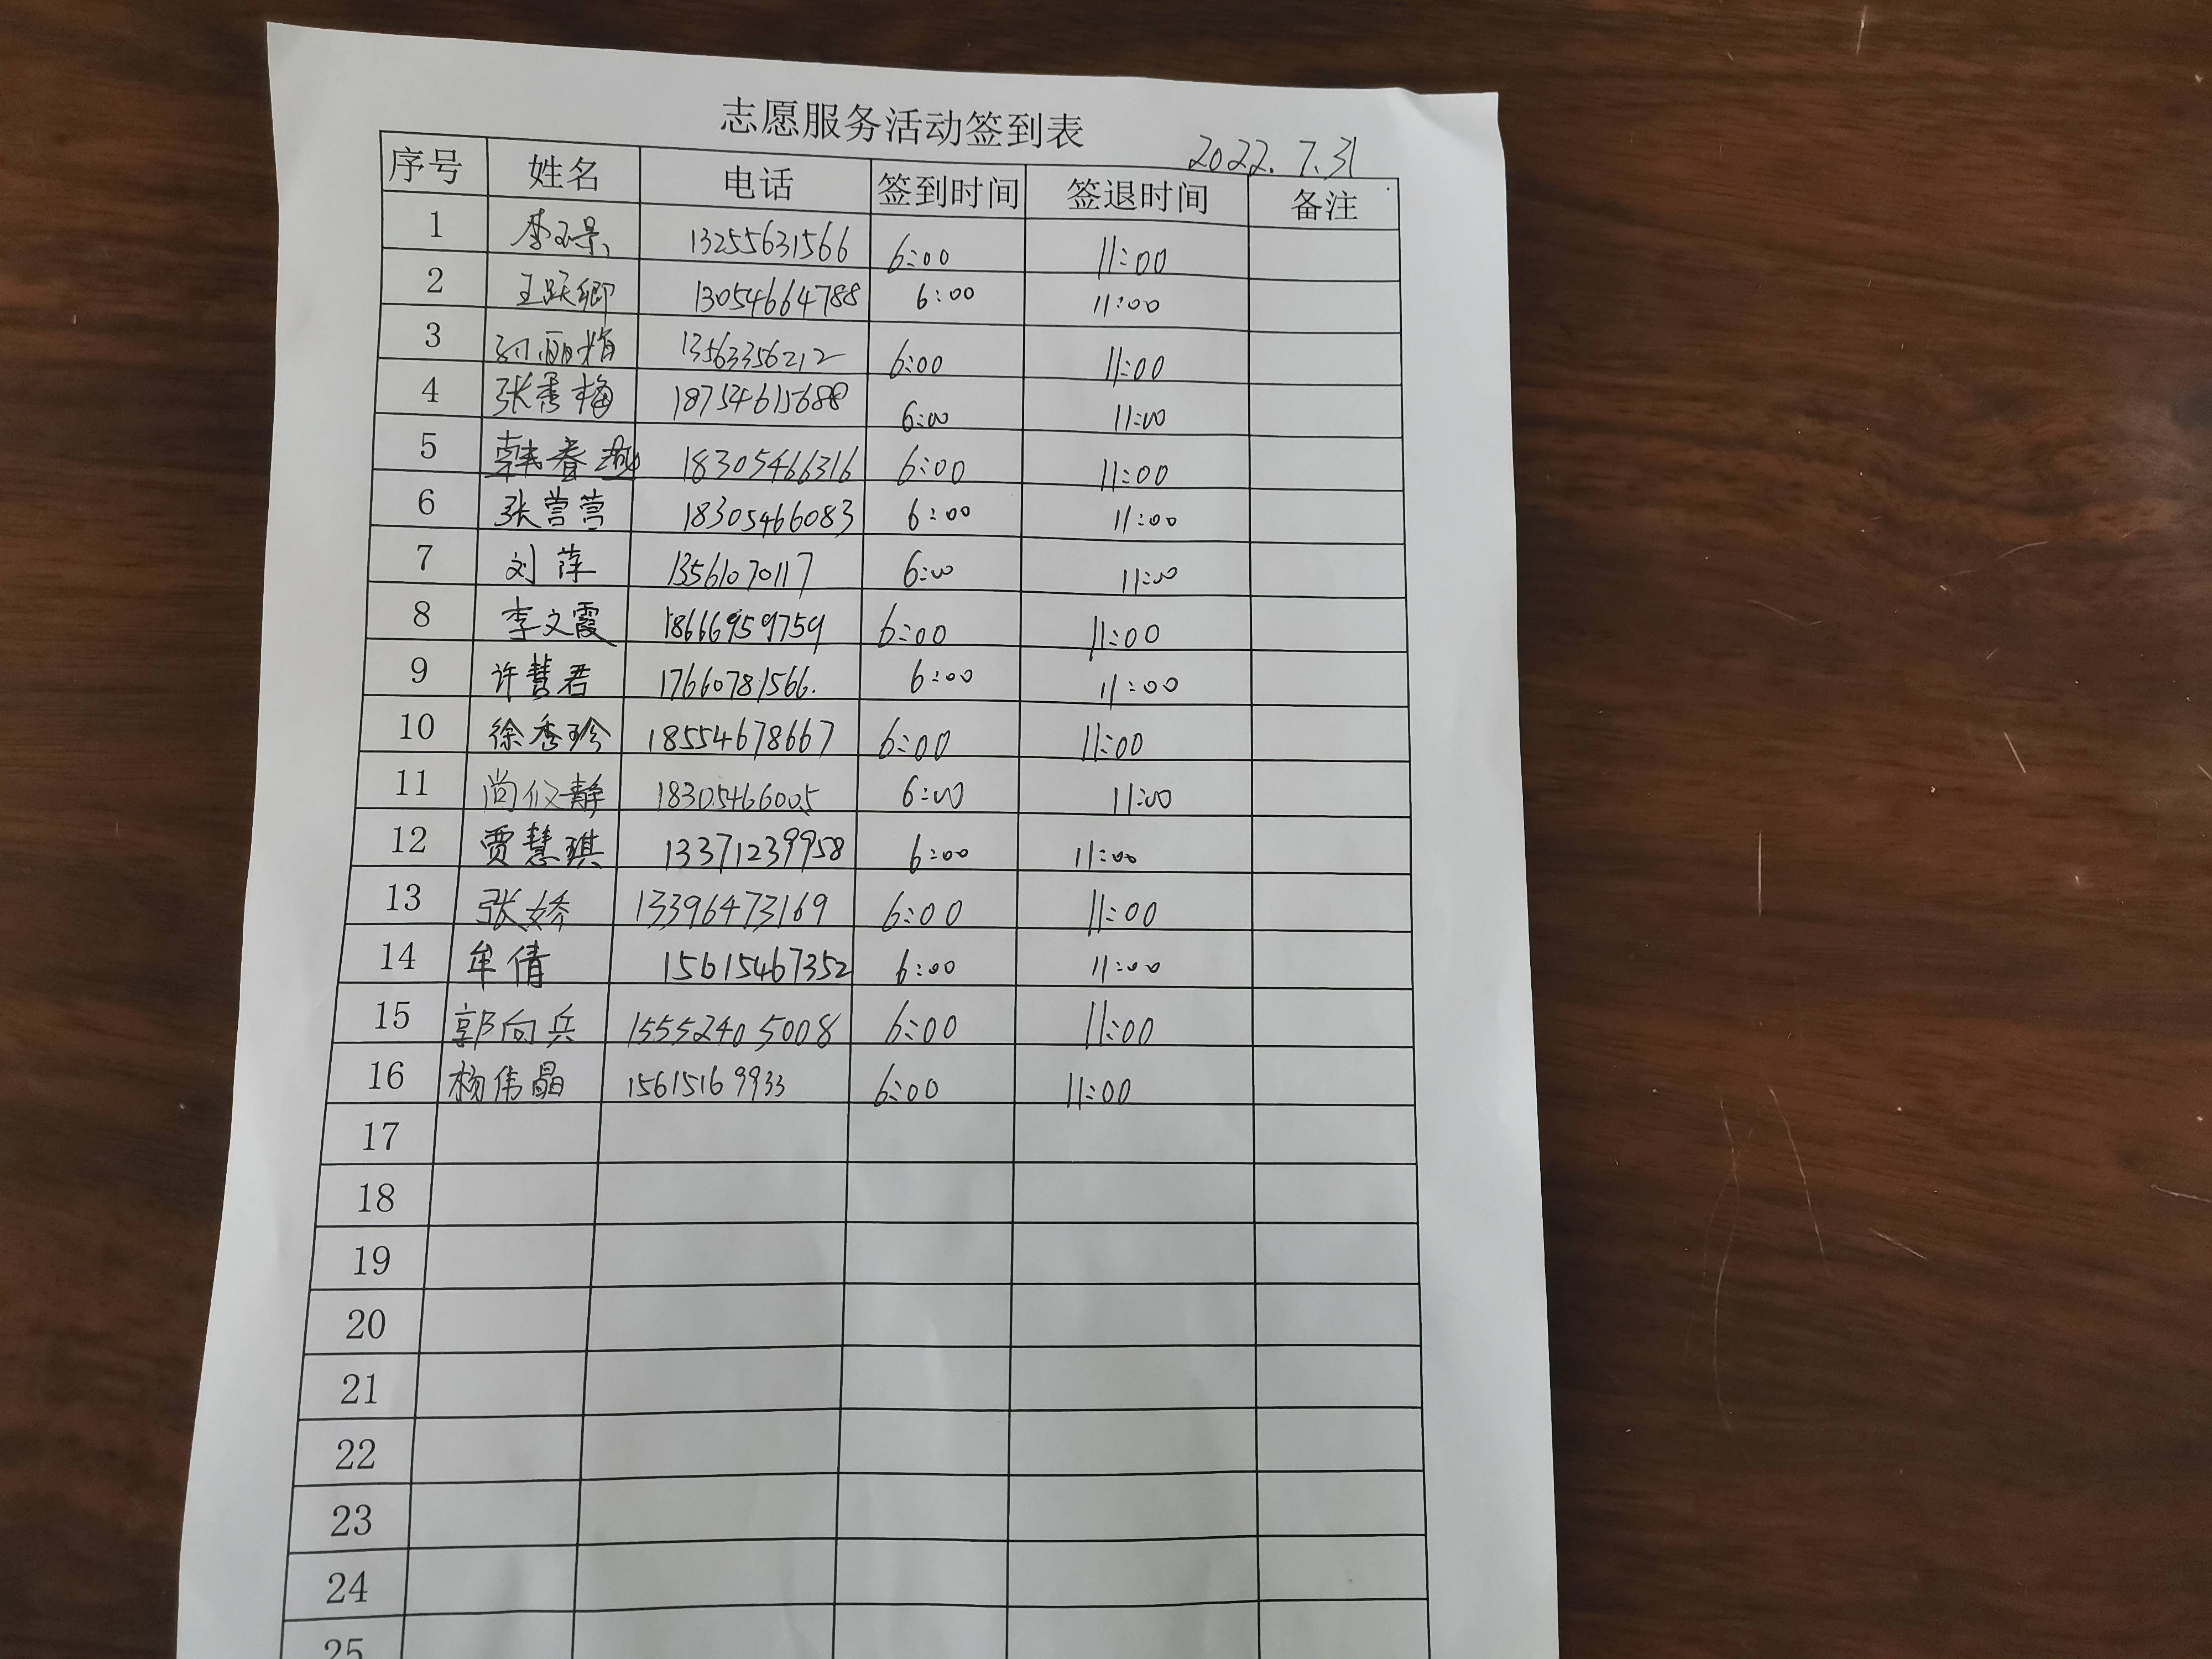 志愿服务活动签到表
2022.7.31
序号 姓名 电话 签到时间 签退时间 备注
1 李玉景 13255631566 6:00 11:00
2 王跃卿 13054664788 6:00 11:00
3 丽娟 13563356212 6:00 11:00
4 张秀梅 18754615688 6:00 11:00
5 韩春燕 18305466316 6:00 11:00
6 张营营 18305466083 6:00 11:00
7 刘萍 13561070117 6:00 11:00
8 李文霞 18666959759 6:00 11:00
9 许慧君 17660781566. 6:00 11:00
10 徐秀珍 18554678667 6:00 11:00
11 尚仪静 18305466005 6:00 11:00
12 贾慧琪 13371239958 6:00 11:00
13 张娇 13396473169 6:00 11:00
14 牟倩 15615467352 6:00 11:00
15 郭向兵 15552405008 6:00 11:00
16 杨伟晶 15615169933 6:00 11:00
17
18
19
20
21
22
23
24
25